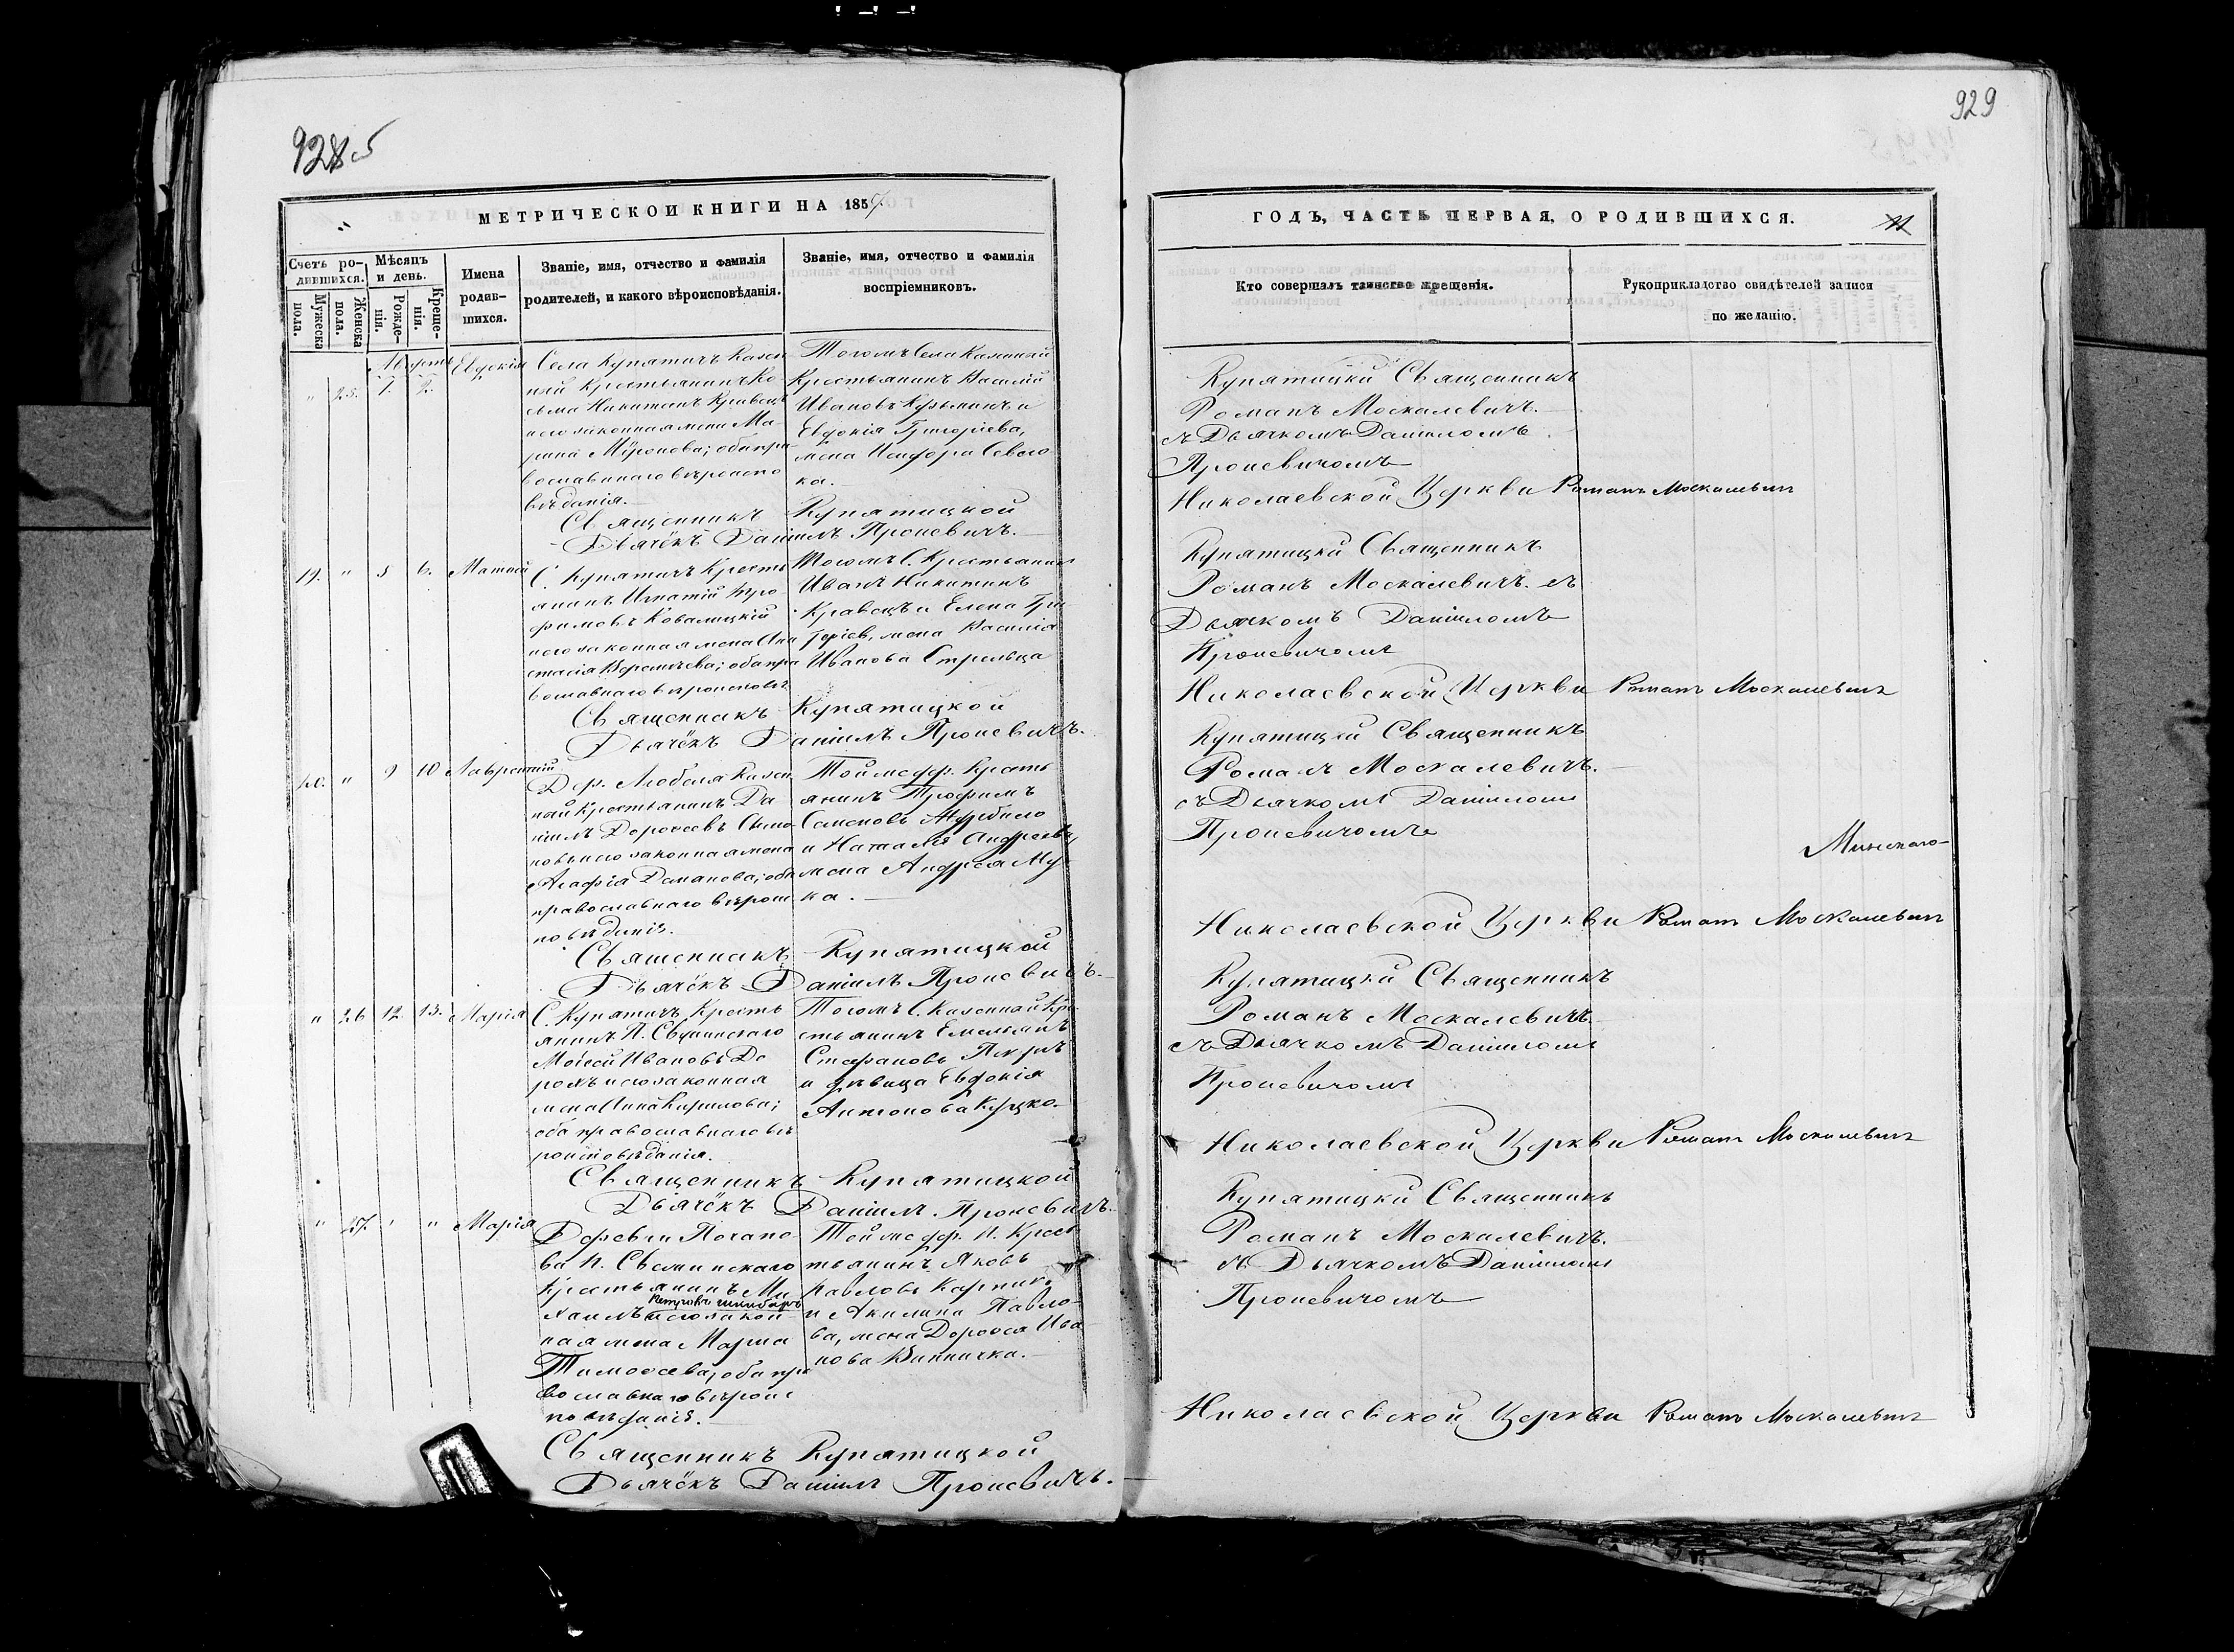 928
5
МЕТРИЧЕСКОЙ КНИГИ НА 185
Счетъ ро-
дившихся.
Мужеска
пола.
Женска
пола.
Мѣсяцъ
и день.
Рожде-
нія.
Креще-
нія.
Имена
родив-
шихся.
Званіе, имя, отчество и фамилія
родителей, и какого вѣроисповѣданія.
Званіе, имя, отчество и фамилія
воспріемниковъ.
Августъ
" 25. 1. 2.
Евдокія
Села Купятичъ Казен
ный Крестьянинъ Ко
сьма Никитинъ Кравецъ
и его законная жена Ма
рина Миронова; оба пра
вославнаго вѣроиспо
вѣданія.
Тогожъ Села Казенный
Крестьянинъ Василій
Ивановъ Кузьминъ и
Евдокія Григоріева,
жена
ка.
Священникъ Купятицкой
Дьячёкъ Даніилъ Проневичъ.
19. " 5 6. Матвей
С. Купятичъ Кресть
янинъ Игнатій Тро
фимовъ Ковалицкій
и его законная жена Ана
стасія; оба пра
вославнаго вѣроисповѣ
Тогожъ С. Крестьянинъ
Иванъ Никитинъ
Кравецъ и Елена Гри
горіев, жена Василія
Иванова Стрельца
Священникъ Купятицкой
Дьячёкъ Даніилъ Проневичъ.
" 9 10 Лаврентій
Дер. Любеля Казен
ный Крестьянинъ Да
ніилъ Дороѳеевъ
и его законная жена
Агафія Доманова; оба
православнаго вѣроис
повѣданія.
Той же дер. Кресть
янинъ Трофимъ
Семеновъ
и Наталія Андреева,
жена Андрея Му
ка.
Священникъ Купятицкой
Дьячёкъ Даніилъ Проневичъ.
" 26 12. 13. Марія
С. Купятичъ Кресть
янинъ П.
Мойсей Ивановъ До
рохъ и его законная
жена Анна Кирилова;
оба православнаго вѣ
роисповѣданія.
Тогожъ С. Казенный Кре
стьянинъ Емельянъ
Стефановъ
и дѣвица Евдокія
Антонова Куцко.
Священникъ Купятицкой
Дьячёкъ Даніилъ Проневичъ.
" 27. " " Марія
Деревни Погапо
ва П.
Крестьянинъ Ми
хаилъ Петровъ и его закон
ная жена Марія
Тимоѳеева, оба пра
вославнаго вѣроис
повѣданія.
Той же дер. П. Крест
тьянинъ Яковъ
Павловъ Карпикъ
и Акилина Павло
ва, жена Дороѳея Ива
нова Винничка.
Священникъ Купятицкой
Дьячёкъ Даніилъ Проневичъ.
929
ГОДЪ, ЧАСТЬ ПЕРВАЯ, О РОДИВШИХСЯ.
11
Кто совершалъ таинство крещенія.
Рукоприкладство свидѣтелей записи
по желанію.
Купятицкій Священникъ
Романъ Москалевичъ.
съ Дьячкомъ Даніиломъ
Проневичомъ
Николаевской Церкви Романъ Москалевичъ
Купятицкій Священникъ
Романъ Москалевичъ. съ
Дьячкомъ Даніиломъ
Проневичомъ
Николаевской Церкви Романъ Москалевичъ
Купятицкій Священникъ
Романъ Москалевичъ.
съ Дьячкомъ Даніиломъ
Проневичомъ
Минскаго
Николаевской Церкви Романъ Москалевичъ
Купятицкій Священникъ
Романъ Москалевичъ.
съ Дьячкомъ Даніиломъ
Проневичомъ
Николаевской Церкви Романъ Москалевичъ
Купятицкій Священникъ
Романъ Москалевичъ.
съ Дьячкомъ Даніиломъ
Проневичомъ
Николаевской Церкви Романъ Москалевичъ